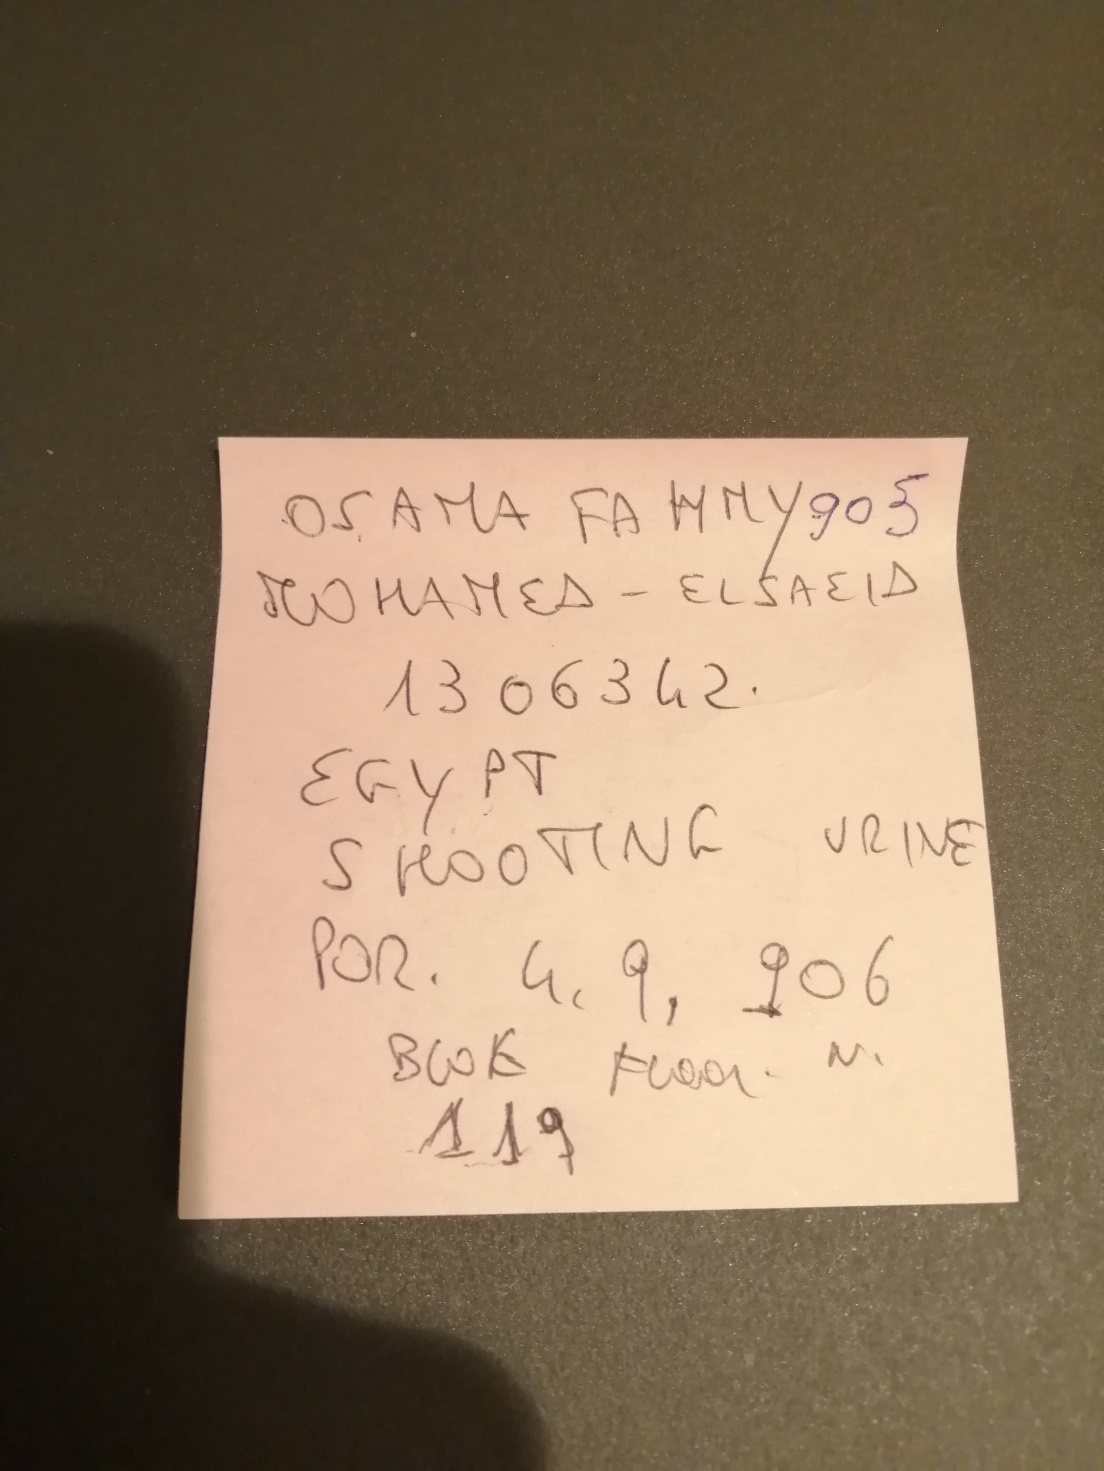 OSAMA FAHMY 905
MOHAMED - ELSAEID
1306342.
EGYPT
SHOOTING URINE
POR. 4, 9, 906
BLOK FLOOR. N.
119